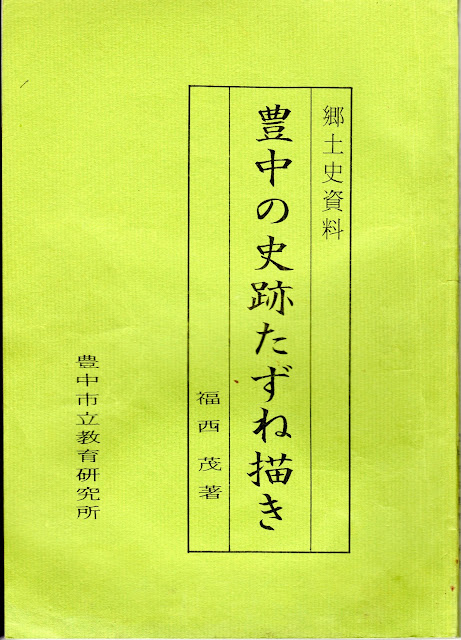 郷土史資料
豊中の史跡たずね描き
福西茂著
豊中市立教育研究所